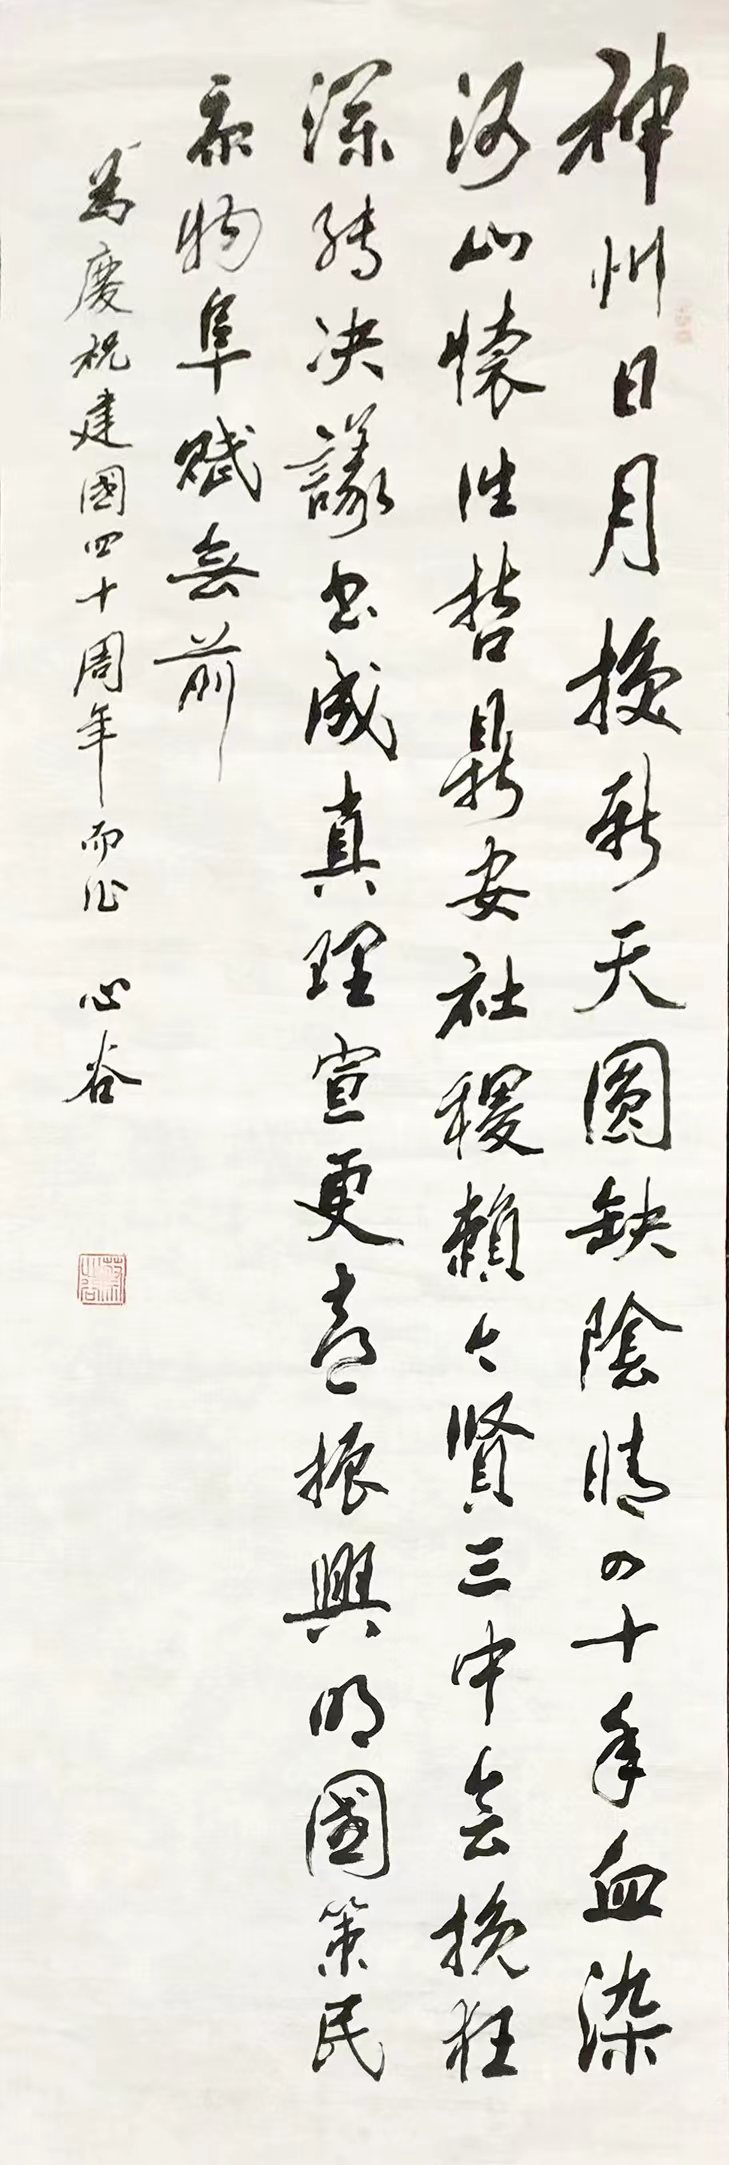 神州日月換新天圓缺陰晴四十年血染
河山懷往哲鼎安社稷賴今賢三中会挽狂
瀾转决議书成真理宣更喜振興明國策民
康物阜賦無前
為慶祝建國四十周年而作 心谷